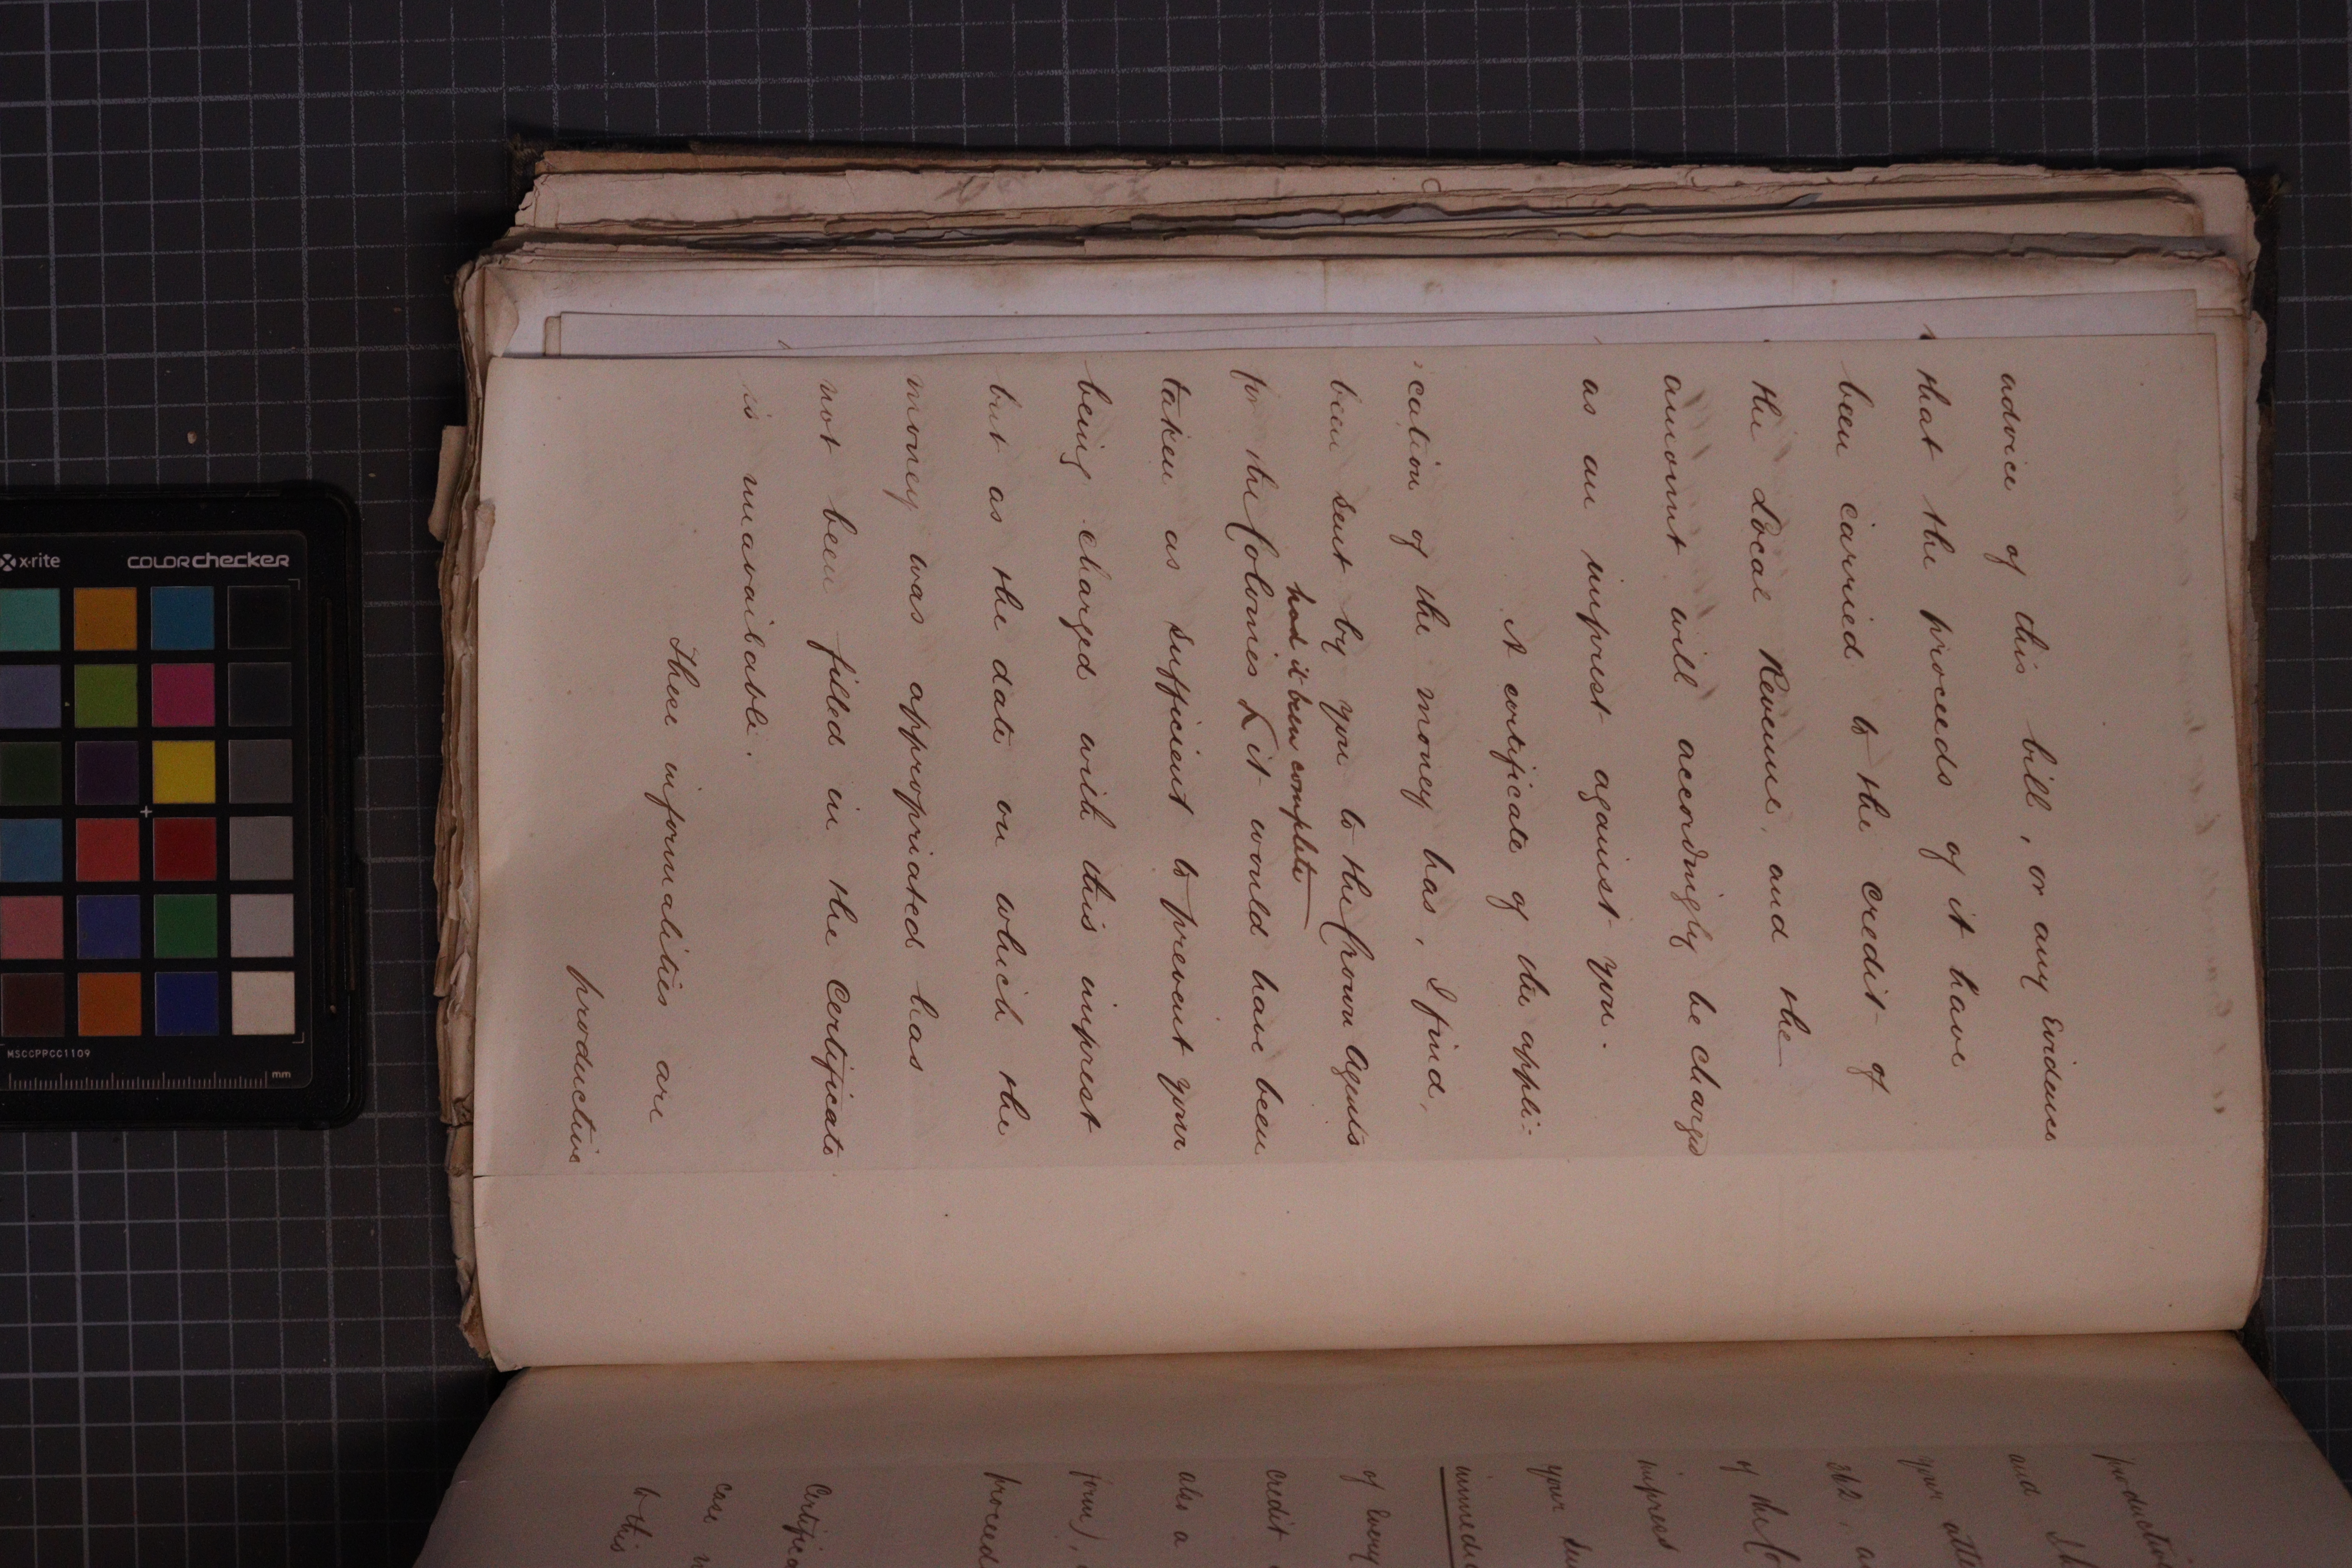 advice of this bill, or any Evidence
that the proceeds of it have
been carried to the credit of
the Local Revenue, and the
amount will accordingly be charged
as an imprest against you.
A certificate of the appli:
:cation of the money has, I find,
been sent by you to the Crown Agents
had it been complete
for the Colonies it would have been
taken as sufficient to prevent your
being charged with this imprest
but as the date on which the
money was appropriated has
not been filled in the Certificate
is unavailable.
These informalities are
productive
productive
and
your atte
262,
of the Co
impress
your
immedi
of Every
credit
also a
form),
proceed
Certifica
case
to this
x-rite
colorchecker
MSCCPPCC1109
mm